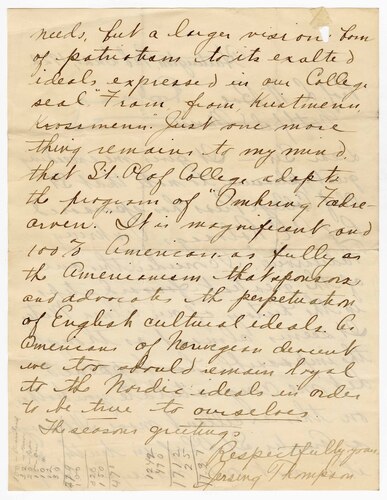 needs, but a larger vision born
of patriotism to its exalted
ideals expressed in our College
seal "Fram fram Kristmenn,
Krossmenn." Just one more
thing remains to my mind,
that St. Olaf College adopts
the program of "Omkring Fædre-
arven." It is magnificent and
100% American, as fully as
the Americanism that sponsors
and advocates the perpetuation
of English cultural ideals. As
Americans of Norwegian descent
we too should remain loyal
to the Nordic ideals in order
to be true to ourselves.
The seasons greeting,
Respectfully yours
Thompson